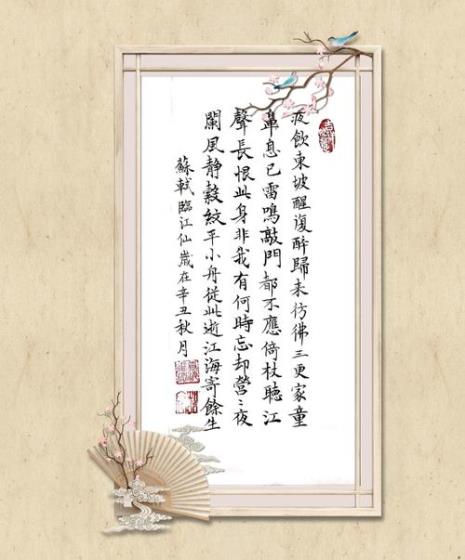 夜飲東坡醒復醉歸来彷彿三更家童
鼻息已雷鳴敲門都不應倚杖聽江
聲長恨此身非我有何時忘却營〻夜
闌風靜縠紋平小舟從此逝江海寄餘生
蘇軾臨江仙歲在辛丑秋月